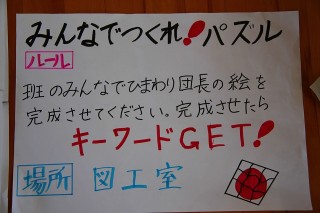 みんなでつくれ!パズル
ルール
班のみんなでひまわり団長の絵を
完成させてください。完成させたら
キーワードGET!
場所 図工室